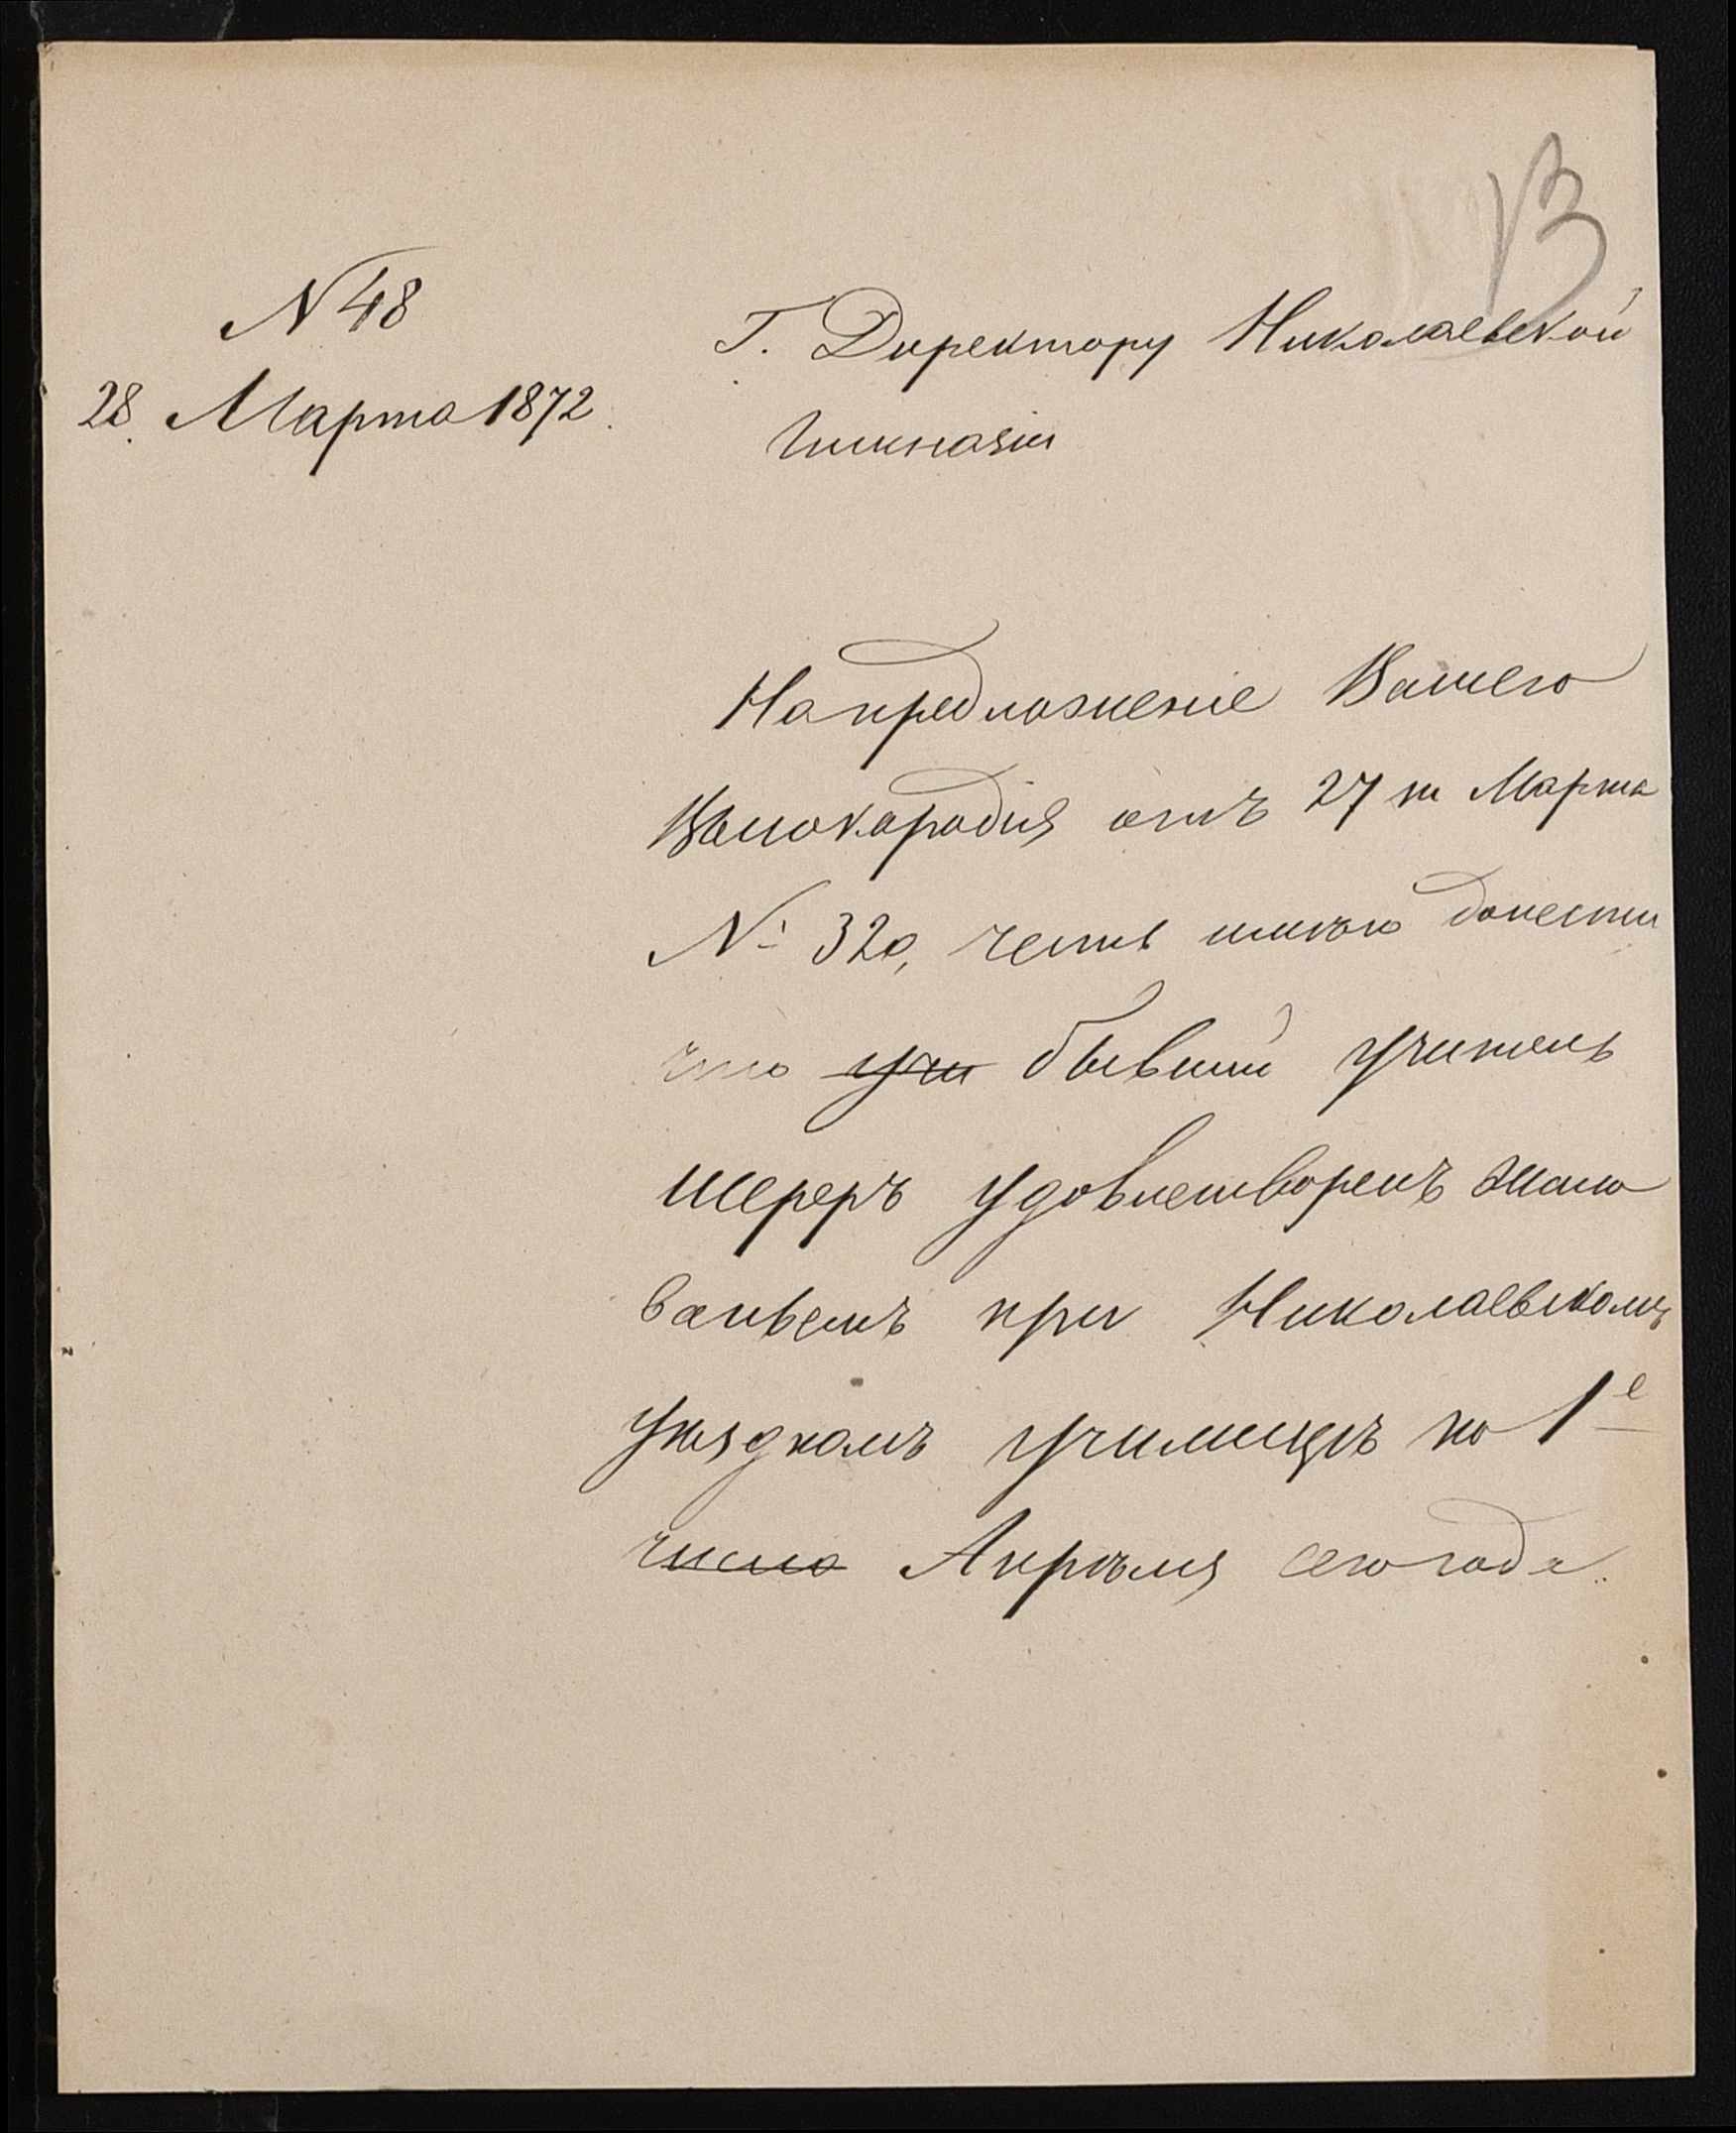 13
N 48
28. Марта 1872.
Г. Директору Николаевской
Гимназіи
На предложеніе Вашего
Высокородія отъ 27 го Марта
№ 320, честь имѣю донести
что учи бывшій учитель
Шереръ удовлетворенъ жало
ваньемъ при Николаевскомъ
уѣздномъ училищѣ по 1е
число Апрѣля сего года.